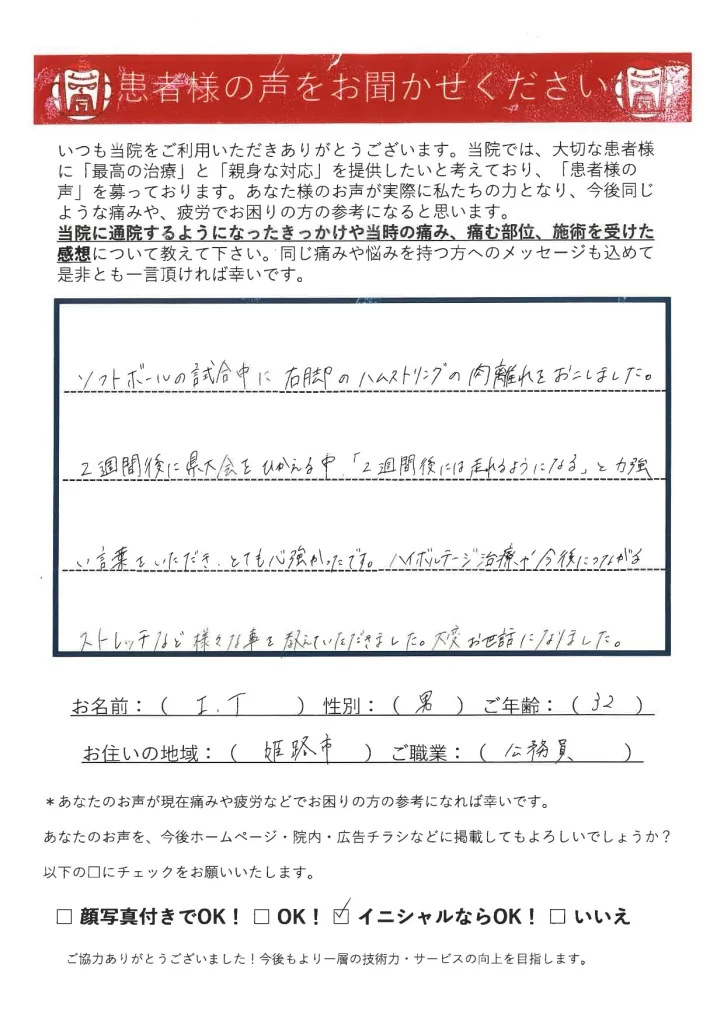 患者様の声をお聞かせください
いつも当院をご利用いただきありがとうございます。当院では、大切な患者様
に「最高の治療」と「親身な対応」を提供したいと考えており、「患者様の
声」を募っております。あなた様のお声が実際に私たちの力となり、今後同じ
ような痛みや、疲労でお困りの方の参考になると思います。
当院に通院するようになったきっかけや当時の痛み、痛む部位、施術を受けた
感想について教えて下さい。同じ痛みや悩みを持つ方へのメッセージも込めて
是非とも一言頂ければ幸いです。
ソフトボールの試合中に右脚のハムストリングの肉離れをおこしました。
2週間後に県大会をひかえる中、「2週間後には走れるようになる」と力強
い言葉をいただき、とても心強かったです。ハイボルテージ治療や今後につながる
ストレッチなど様々な事を教えていただきました。大変お世話になりました。
お名前：（ I.T ） 性別：（ 男 ） ご年齢：（ 32 ）
お住いの地域：（ 姫路市 ） ご職業：（ 公務員 ）
＊あなたのお声が現在痛みや疲労などでお困りの方の参考になれば幸いです。
あなたのお声を、今後ホームページ・院内・広告チラシなどに掲載してもよろしいでしょうか？
以下の□にチェックをお願いいたします。
□ 顔写真付きでOK！ □ OK！ ☑ イニシャルならOK！ □ いいえ
ご協力ありがとうございました！今後もより一層の技術力・サービスの向上を目指します。